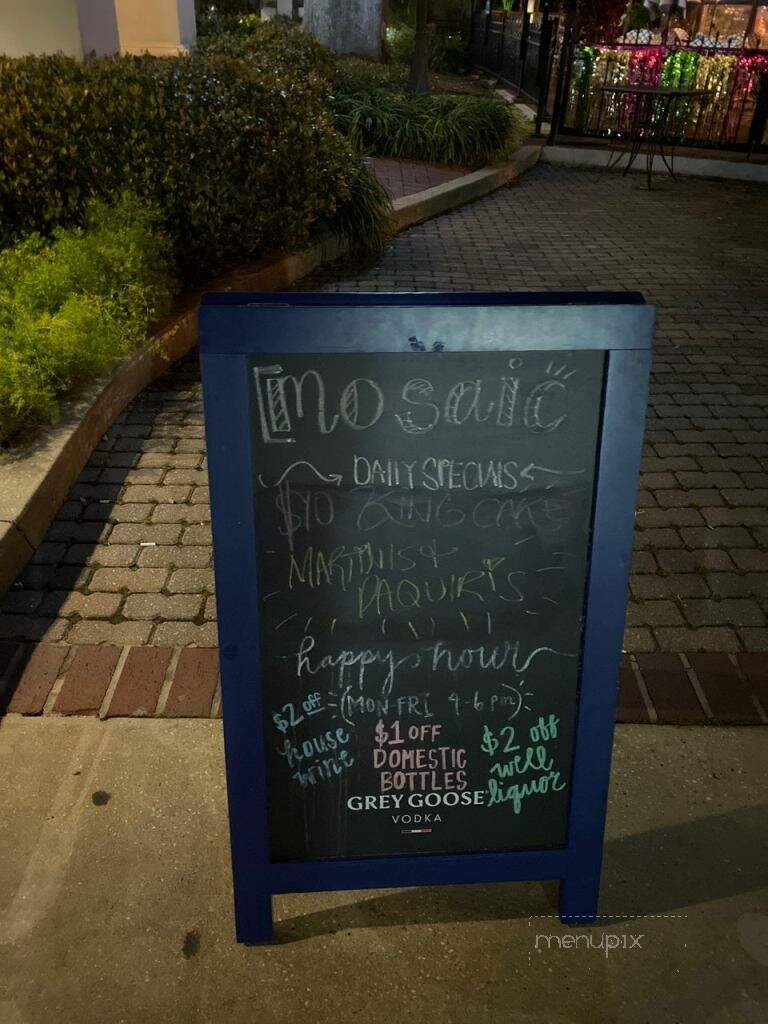 mosaic
DAILY SPECIALS
$10 KING CAKE
MARTINIS &
DAQUIRIS
happy hour
(MON-FRI 4-6 pm)
$2 off
house
wine
$1 OFF
DOMESTIC
BOTTLES
$2 off
well
liquor
GREY GOOSE
VODKA
menupix